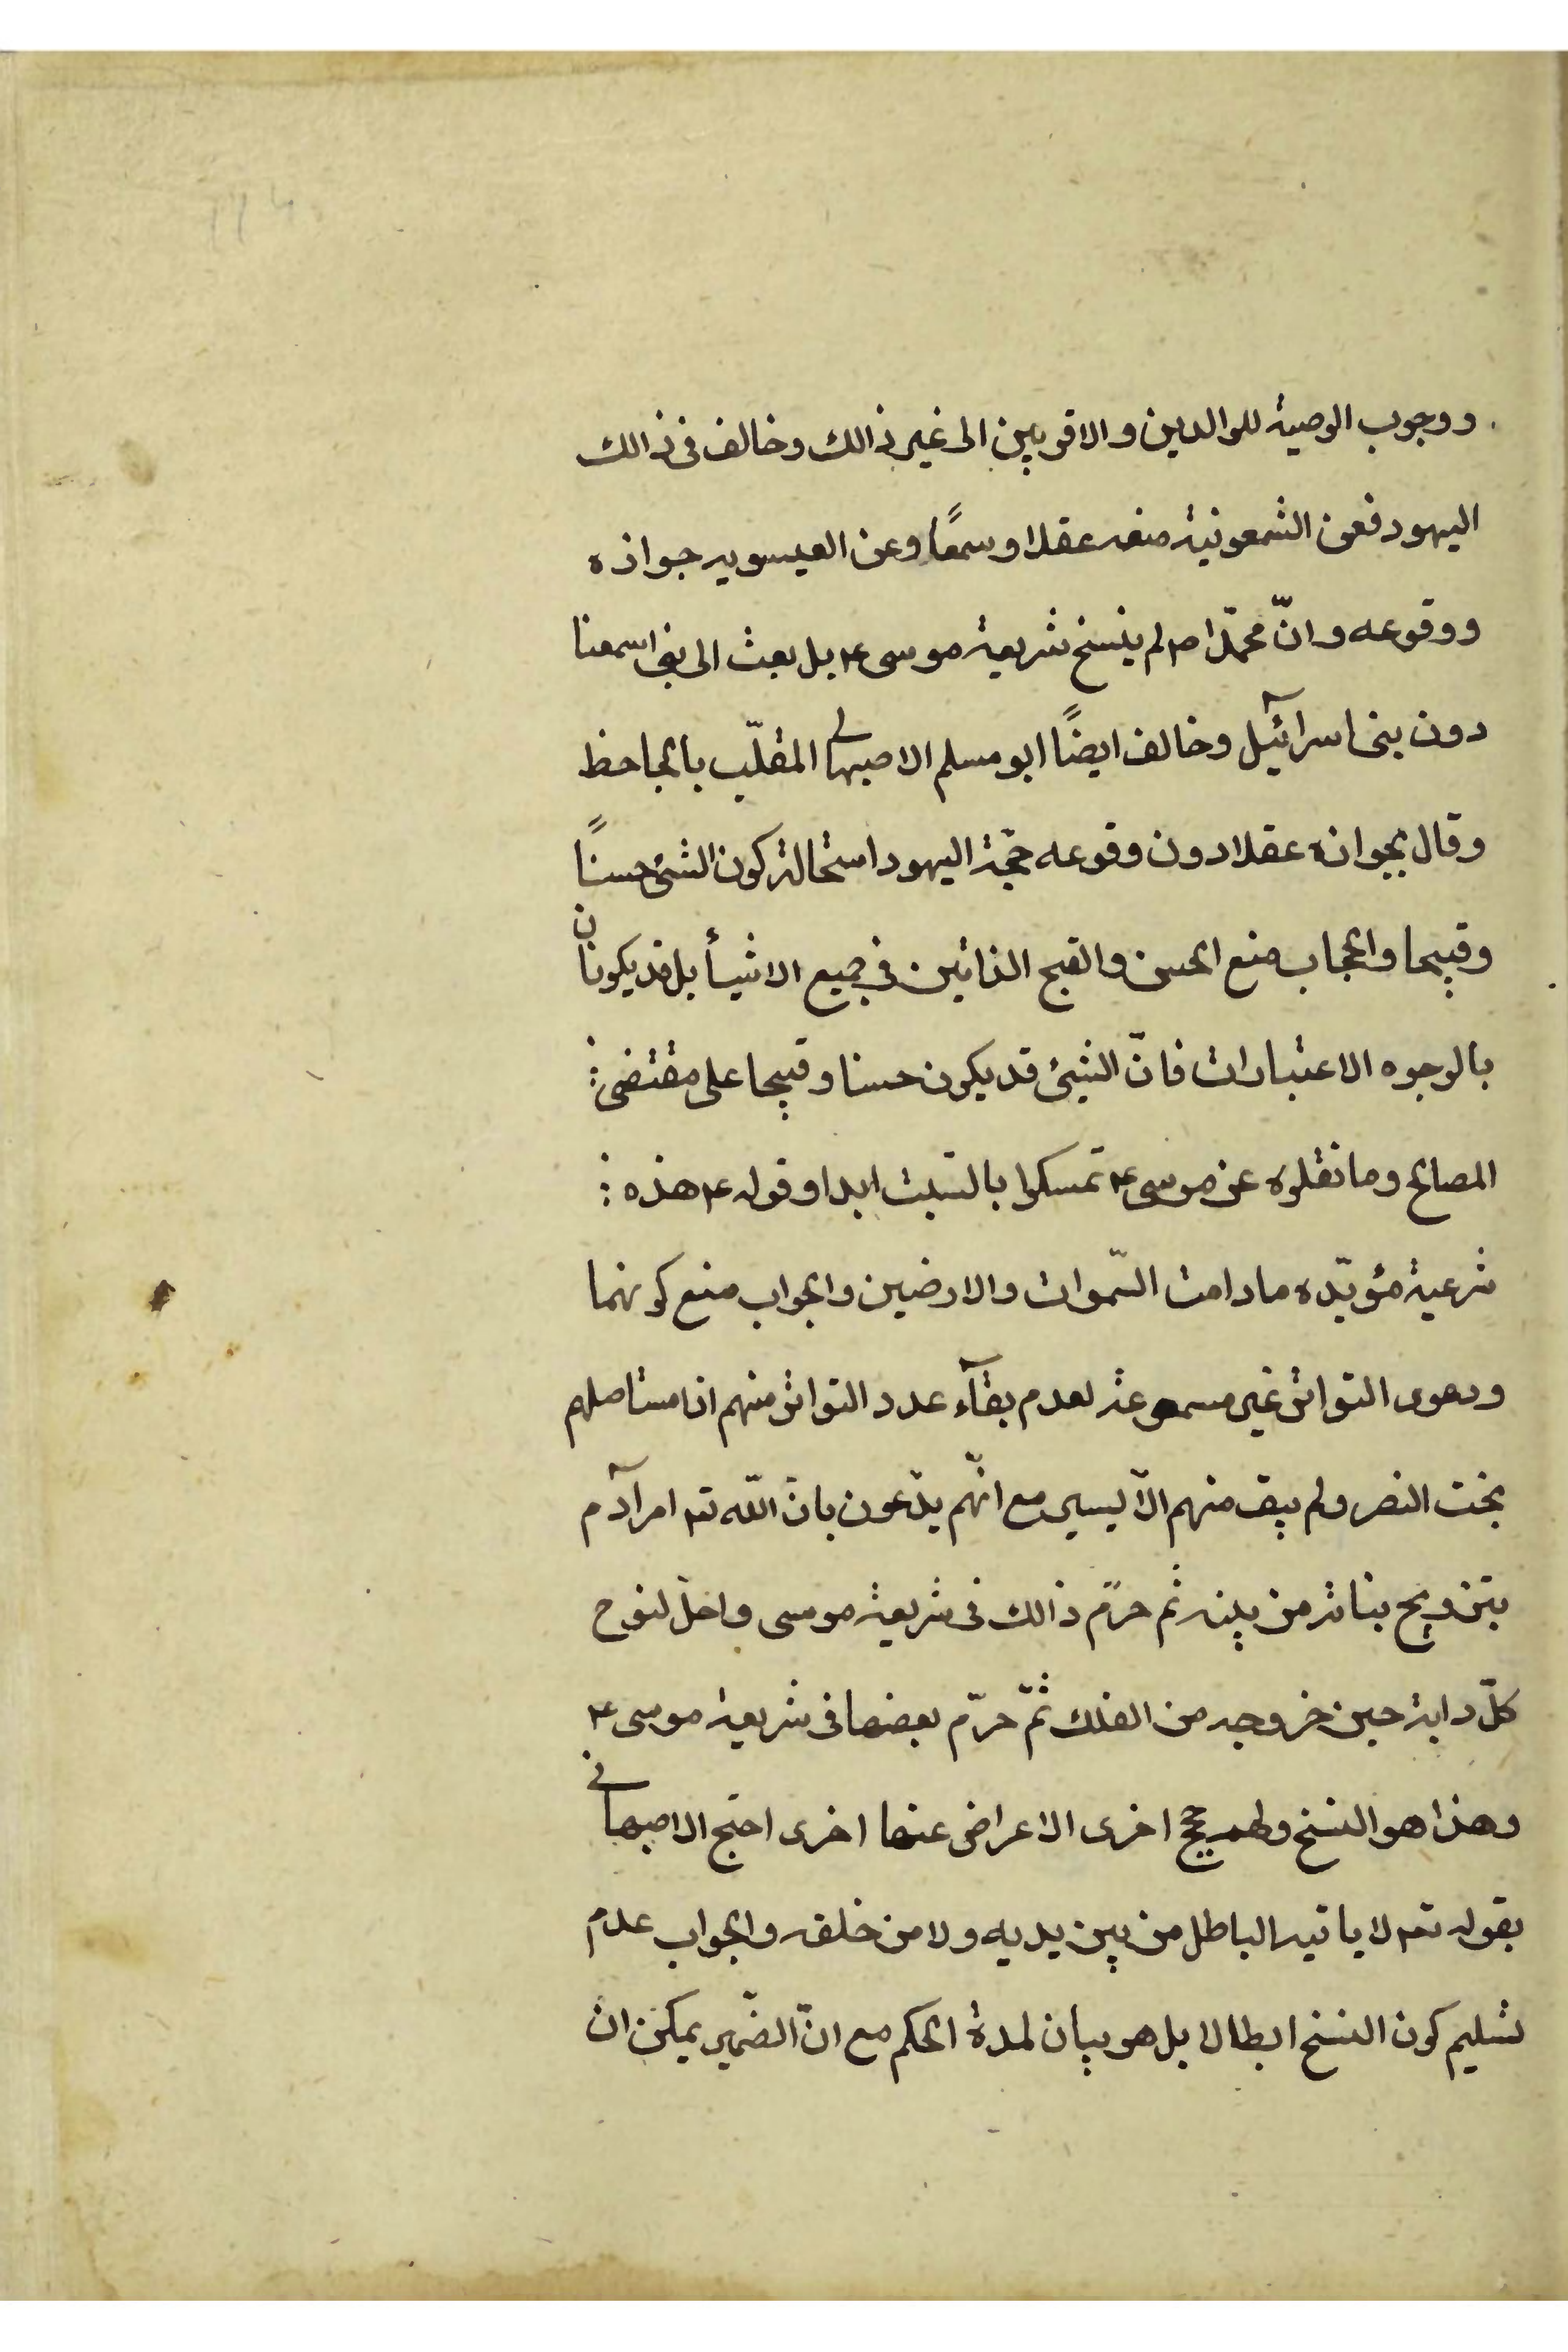 ووجوب الوصية للوالدين والاقربين الى غير ذالك وخالف فى ذالك
اليهود فعن الشمعونية منعه عقلا وسمعًا وعن العيسويه جوازه
ووقوعه وانّ محمّدا ص لم ينسخ شريعة موسى ع بل بعث الى بنى اسمعنا
دون بنى اسرآئيل وخالف ايضًا ابو مسلم الاصبهانى المقلّب بالجاحظ
وقال بجوازه عقلا دون وقوعه حجّة اليهود استحالة كون الشئ حسنًا
وقبيحا والحجاب منع الحسن والقبح الذاتين فى جميع الاشيأ بل قد يكونان
بالوجوه الاعتبارات فانّ الشيئ قد يكون حسنا وقبيحا على مقتضى
المصالح وما نقلوه عن موسى ع تمسكوا بالسّبت ابدا وقوله ع هذه
شرعية مؤبّده مادامت السّموات والارضين والجواب منع كونهما
ودعوى التواتر غير مسموعة لعدم بقآء عدد التواتر منهم اذا مستاصلهم
بخت النصر ولم يبق منهم الّا يسير مع انّهم يدّعون بانّ اللّه تع امر آدم
بتزويج بناته من بينه ثم حرّم ذالك فى شريعة موسى واحلّ لنوح
كلّ دابة حين خروجه من الفلك ثمّ حرّم بعضها فى شريعة موسى ع
وهذا هو النسخ ولهم حجج اخرى الاعراض عنها اخرى احتج الاصبهانى
بقوله تع لا ياتيه الباطل من بين يديه ولا من خلفه والجواب عدم
تسليم كون النسخ ابطالا بل هو بيان لمدة الحكم مع انّ الضّمير يمكن ان